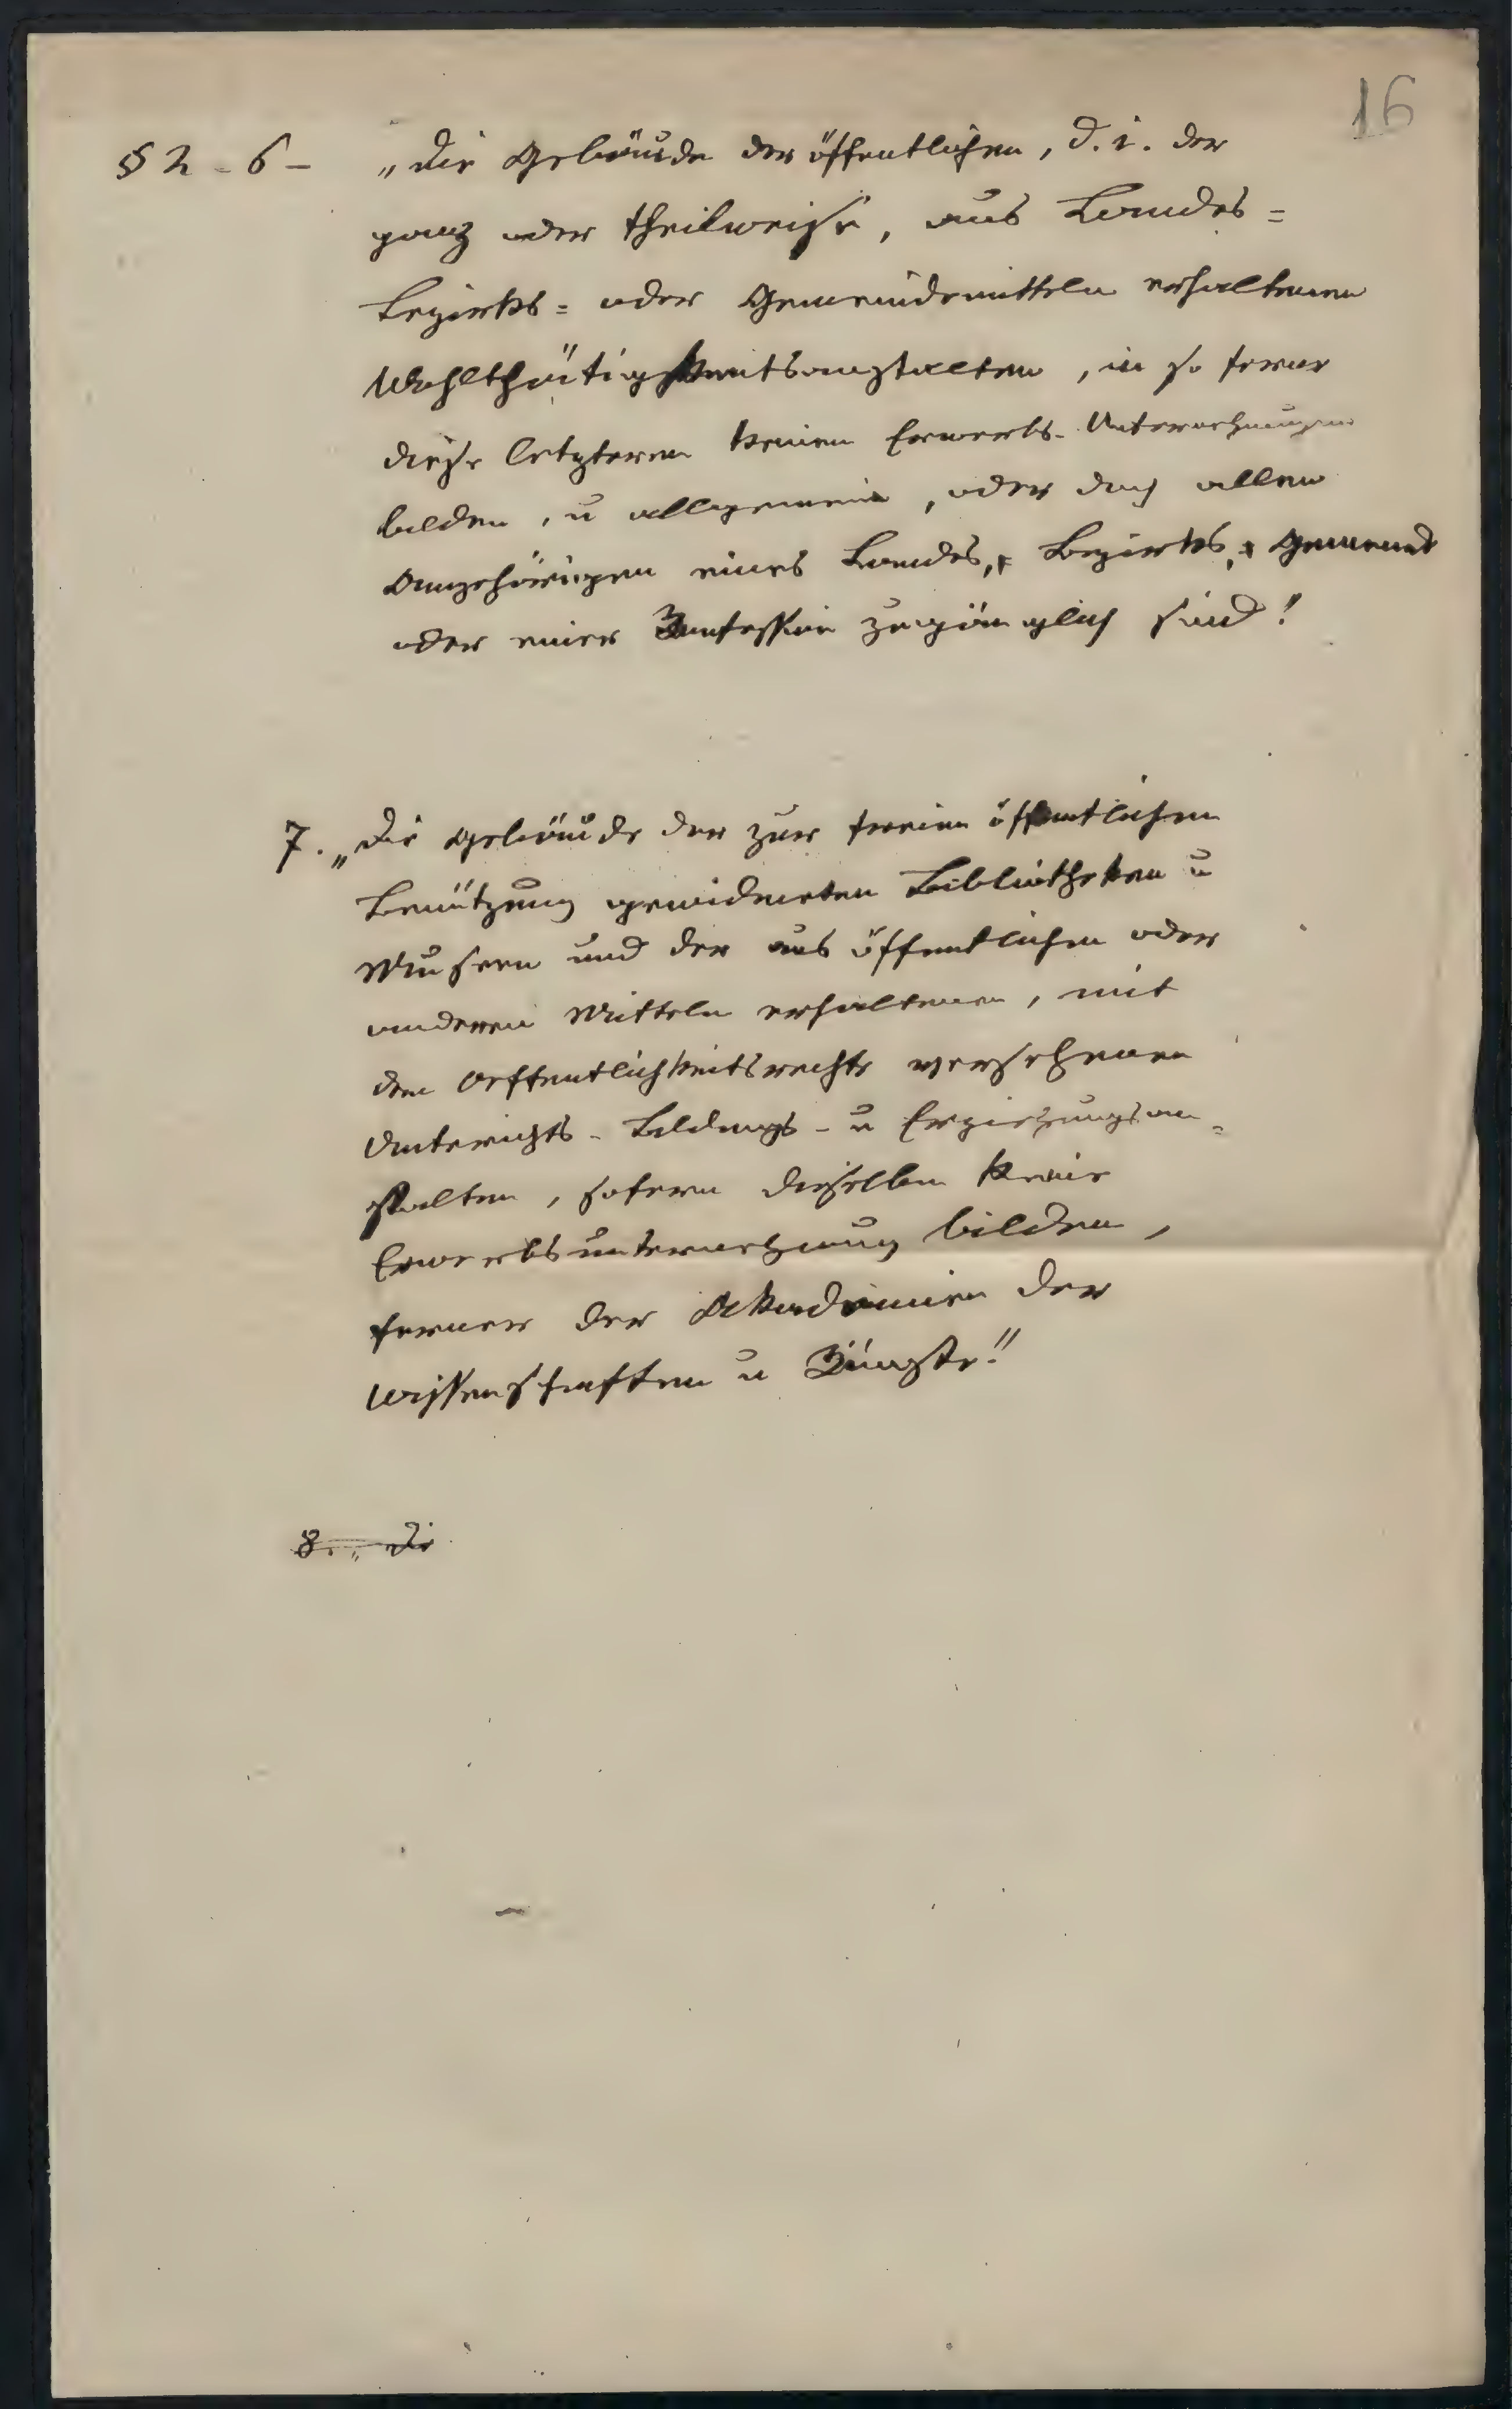 16
§ 2 - 6 - „Die Gebäude der öffentlichen, d. i. der
ganz oder theilweise, aus Landes=
Bezirks= oder Gemeindemitteln erhaltenen
Wohlthätigkeitsanstalten, in so ferne
diese letzteren keinen Erwerbs-Unternehmungen
bilden, u allgemein, oder doch allen
Angehörigen eines Landes, Bezirks, Gemeinde
oder einer Konfession zugänglich sind!
7. „Die Gebäude der zur freien öffentlichen
Benützung gewidmeten Bibliotheken u
Museen und der aus öffentlichen oder
anderen Mitteln erhaltenen, mit
dem Oeffentlichkeitsrechte versehenen
Unterichts- Bildungs- u Erziehungsan=
stalten, sofern dieselben keine
Erwerbsunternehmung bilden,
ferner der Akademien der
Wissenschaften u Künste."
8. „Di